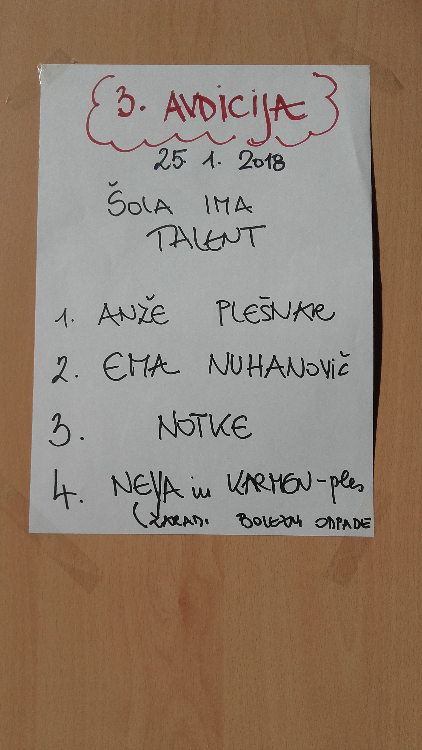 3. AVDICIJA
25. 1. 2018
ŠOLA IMA
TALENT
1. ANŽE PLEŠNAR
2. EMA NUHANOVIČ
3. NOTKE
4. NEJA in KARMEN-ples
(ZARADI BOLEZNI ODPADE